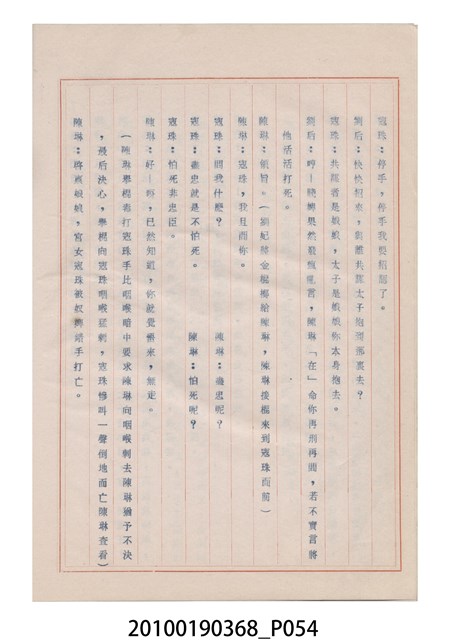 寇珠：停手，停手我要招認了。
劉后：快快招來，與誰共謀太子抱到那裏去？
寇珠：共謀者是娘娘，太子是娘娘你本身抱去。
劉后：呀！賤婢果然發瘋亂言，陳琳「在」命你再刑再問，若不實言將
他活活打死。
陳琳：領旨。（劉妃將金棍梛給陳琳，陳琳後棍來到寇珠面前）
陳琳：寇珠，我且問你。
寇珠：問我什麼？　陳琳：盡忠呢？
寇珠：盡忠就是不怕死。　陳琳：怕死呢？
寇珠：怕死非忠臣。
陳琳：好！好，已然知道，你就覺悟來，無走。
（陳琳舉棍毒打寇珠手比咽喉暗中要求陳琳向咽喉刺去陳琳猶予不決
，最後決心，舉棍向寇珠咽喉猛刺，寇珠慘叫一聲倒地而亡陳琳查看）
陳琳：啓禀娘娘，宮女寇珠被奴婢錯手打亡。
20100190368_P054